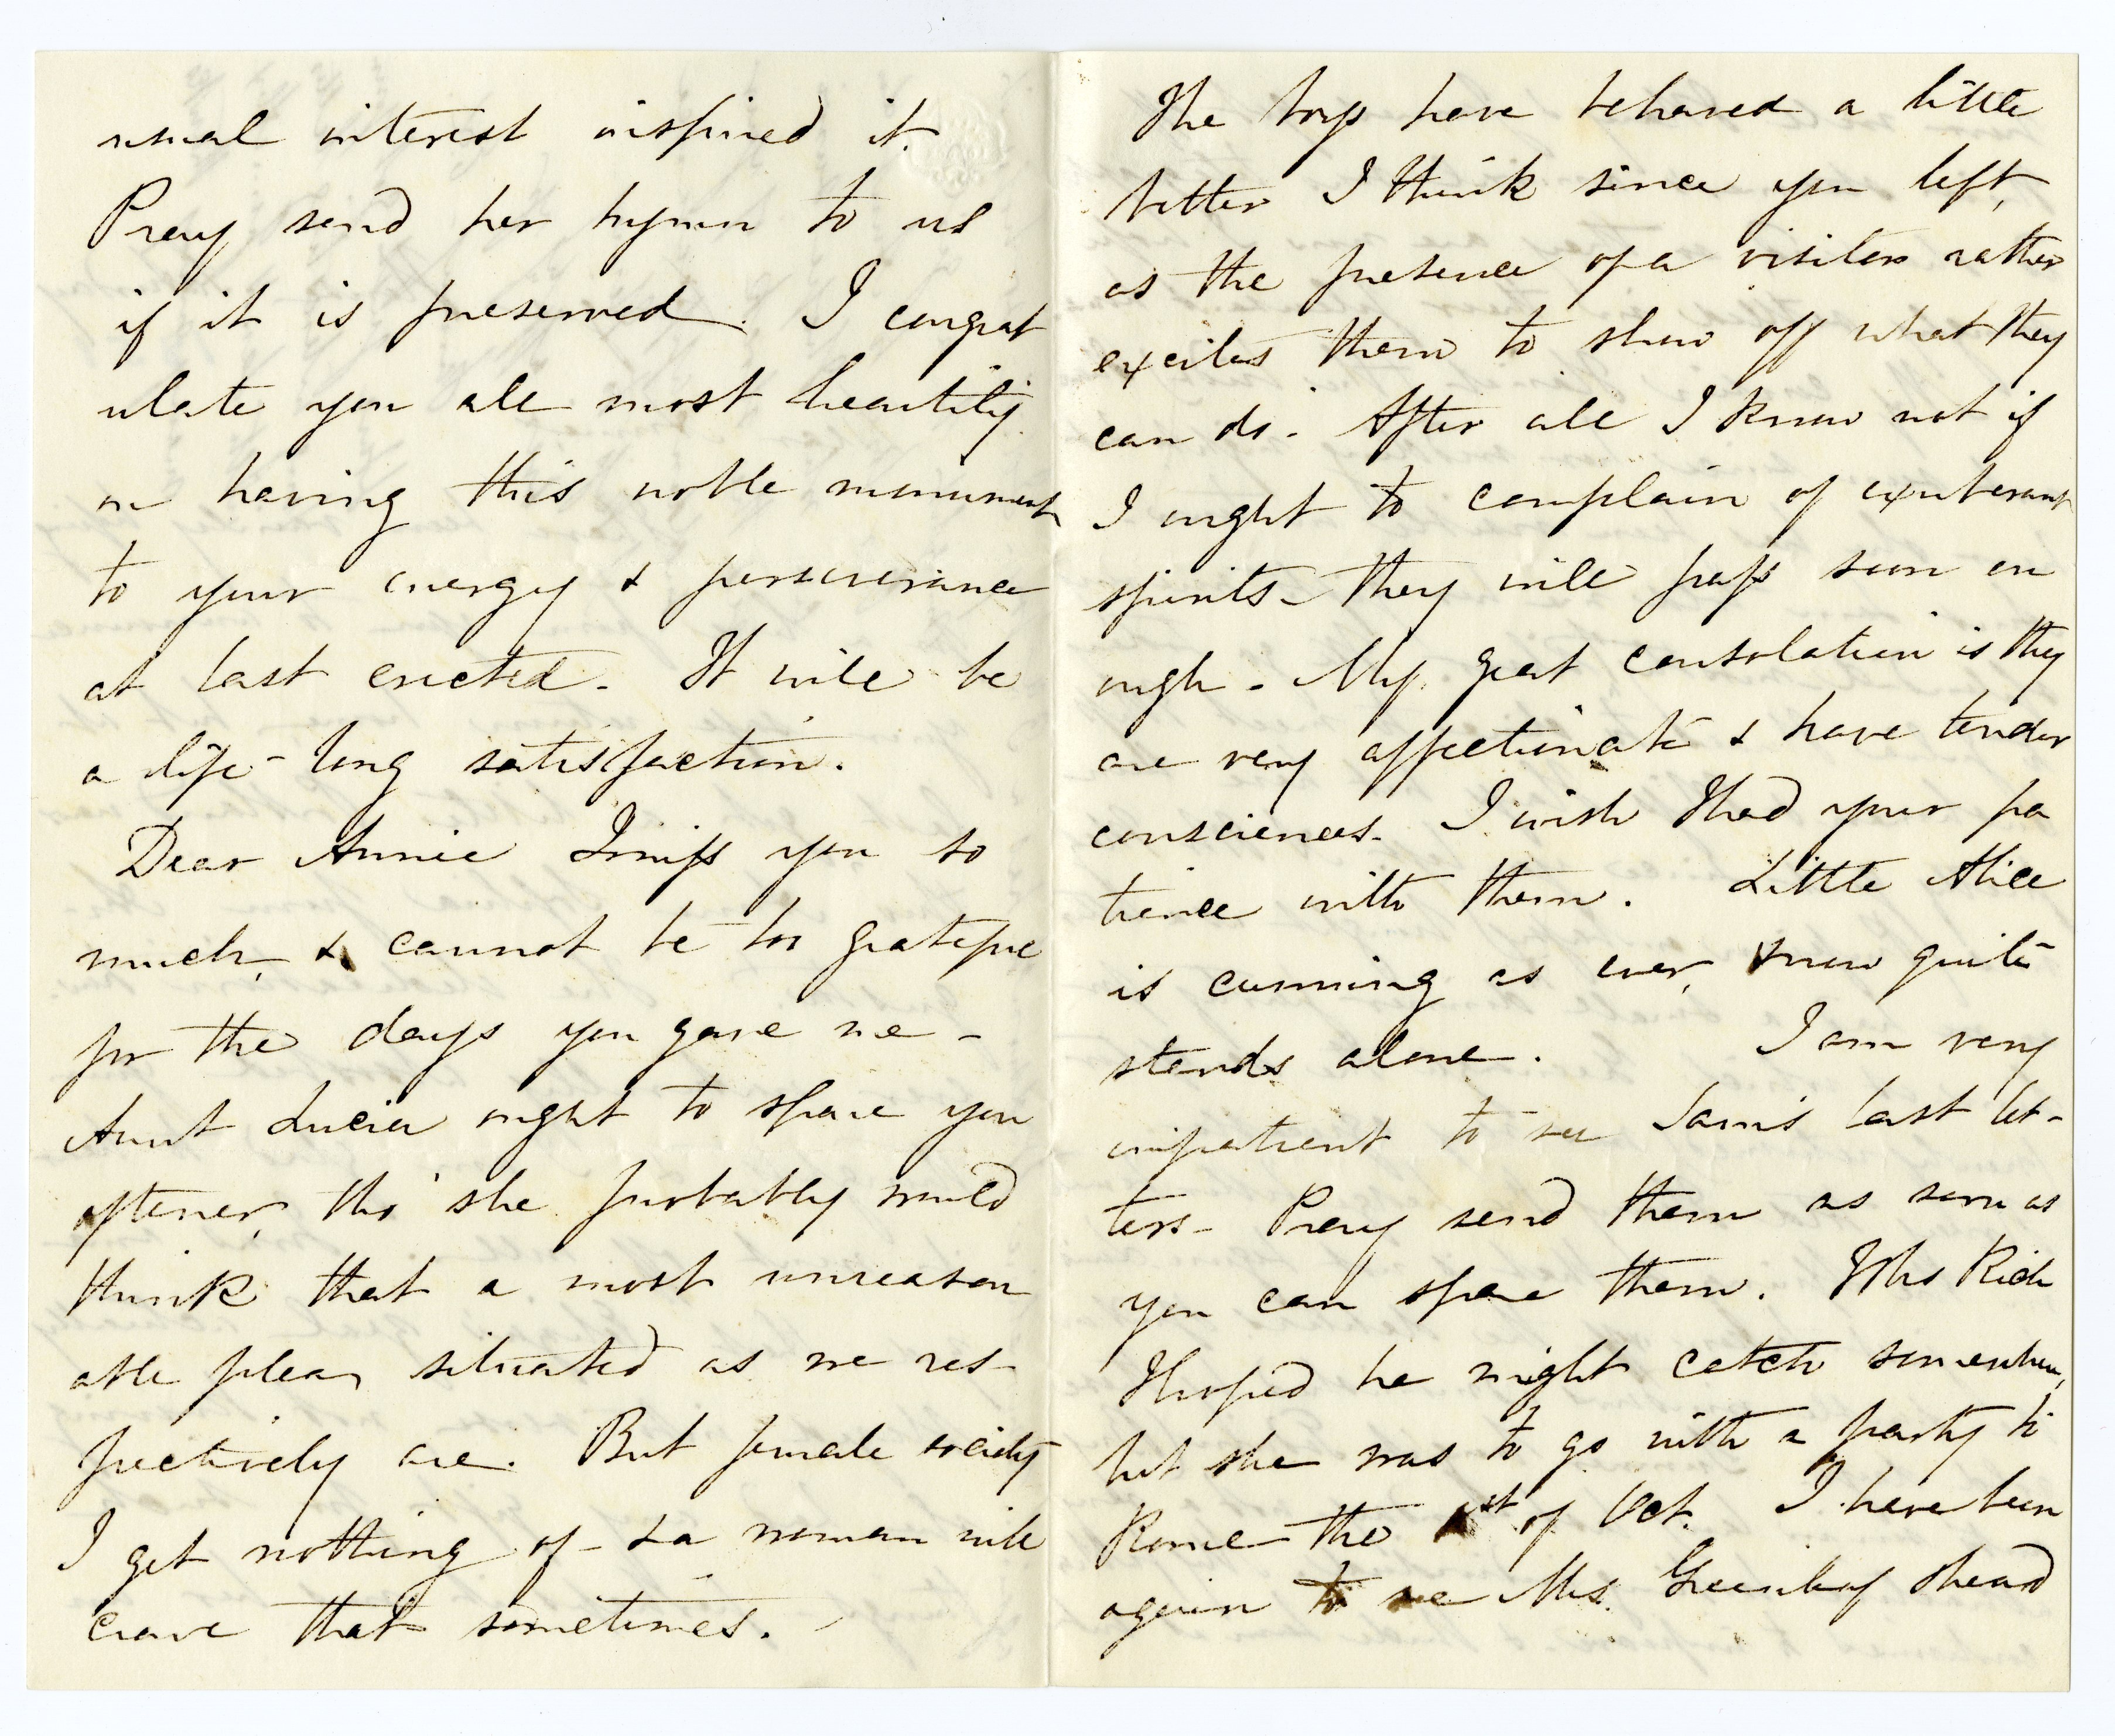 usual interest inspired it.
Pray send her hymn to us
if it is preserved. I congrat
ulate you all most heartily
on having this noble monument
to your energy & perseverance
at last erected. It will be
a life-long satisfaction.
Dear Annie I miss you so
much, & cannot be too grateful
for the days you gave me -
Aunt Lucia ought to spare you
oftener, tho' she probably would
think that a most unreason
able plea, situated as we res
pectively are. But female society
I get nothing of - & a woman will
crave that sometimes. -
The boys have behaved a little
better I think since you left,
as the presence of a visitor rather
excites them to show off what they
can do. After all I know not if
I ought to complain of exuberant
spirits - they will pass soon en
ough - My great consolation is they
are very affectionate & have tender
consciences. I wish I had your pa
tience with them. Little Alice
is cunning as ever, & now quite
stands alone. I am very
impatient to see Sam's last let-
ters - Pray send them as soon as
you can spare them. Mrs Rich
I hoped he might catch somewhere,
but she was to go with a party to
Rome the 1st of Oct. I have been
again to see Mrs. Greenleaf & head